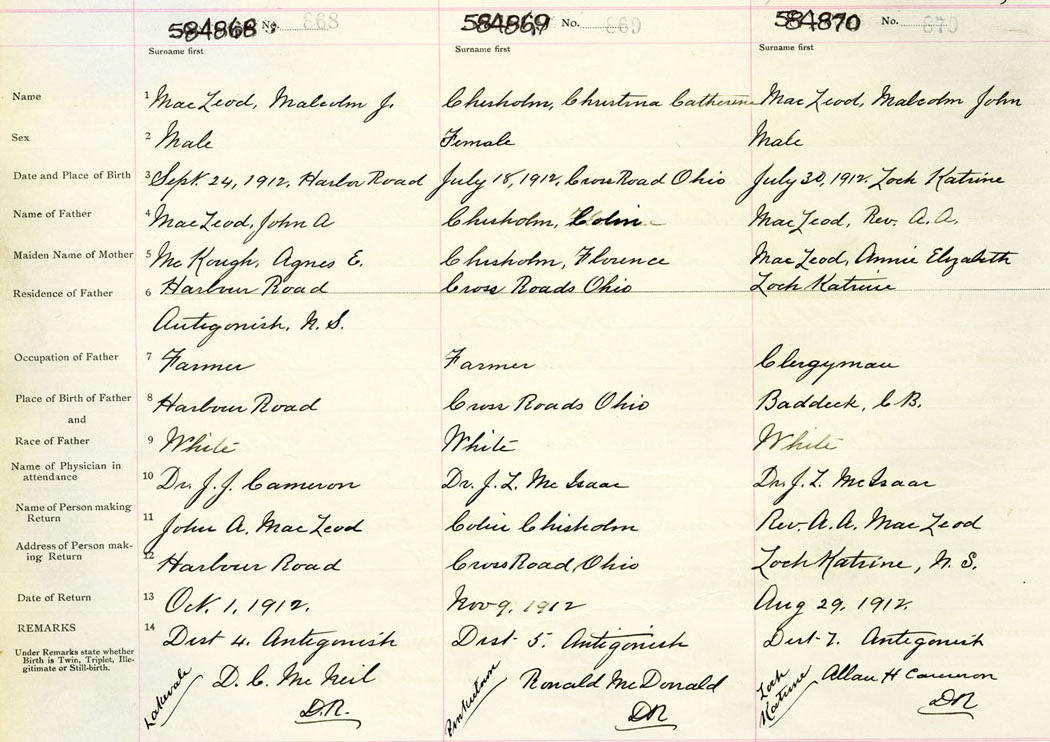 584868 No. 868 584869 No. 869 584870 No. 870
Surname first Surname first Surname first
Name 1 MacLeod, Malcolm J. Chisholm, Christina Catherine MacLeod, Malcolm John
Sex 2 Male Female Male
Date and Place of Birth 3 Sept. 24, 1912, Harbor Road July 18, 1912, Cross Road Ohio July 30, 1912. Loch Katrine
Name of Father 4 MacLeod, John A Chisholm, Colin MacLeod, Rev. A. A.
Maiden Name of Mother 5 McKough, Agnes E. Chisholm, Florence MacLeod, Annie Elizabeth
Residence of Father 6 Harbour Road Cross Roads Ohio Loch Katrine
Antigonish, N. S.
Occupation of Father 7 Farmer Farmer Clergyman
Place of Birth of Father 8 Harbour Road Cross Roads Ohio Baddeck, C B.
and
Race of Father 9 White White White
Name of Physician in
attendance 10 Dr. J. J. Cameron Dr. J. L. McIsaac Dr. J. L. McIsaac
Name of Person making
Return 11 John A. MacLeod Colin Chisholm Rev. A. A. MacLeod
Address of Person mak-
ing Return 12 Harbour Road Cross Road Ohio Loch Katrine, N. S.
Date of Return 13 Oct. 1, 1912. Nov 9, 1912 Aug 29, 1912.
REMARKS 14 Dist 4. Antigonish Dist 5. Antigonish Dist 7. Antigonish
Under Remarks state whether
Birth is Twin, Triplet, Ille-
gitimate or Still-birth.
Lakevale D. C. McNeil Ronald McDonald Loch Katrine Allan H Cameron
D.R. DR DR